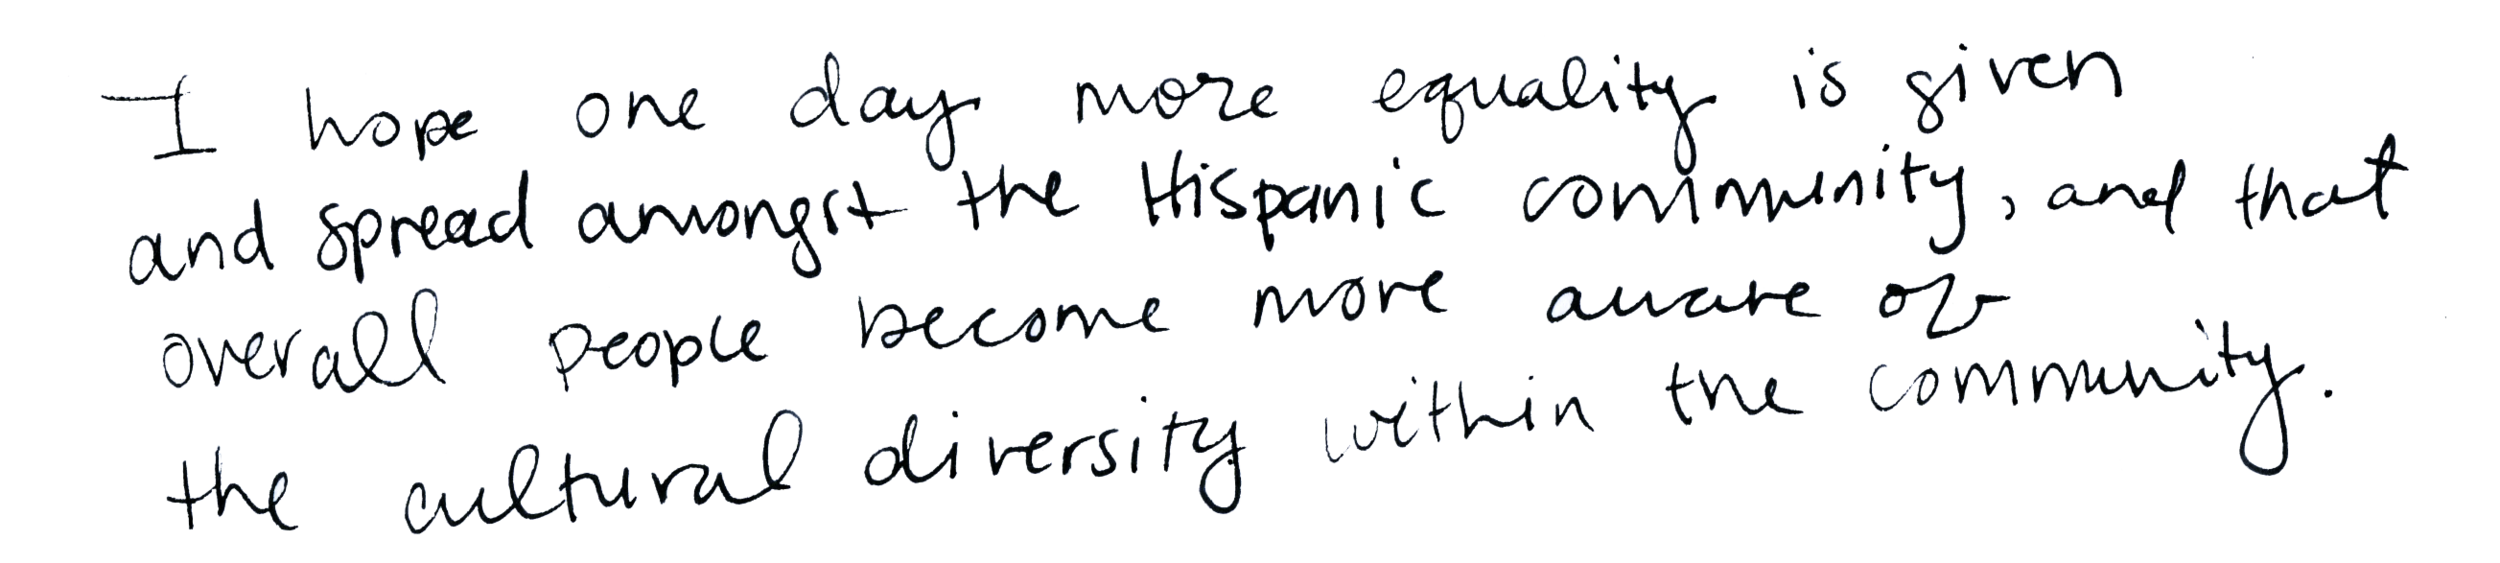 I hope one day more equality is given
and spread amongst the Hispanic community, and that
overall people become more aware of
the cultural diversity within the community.